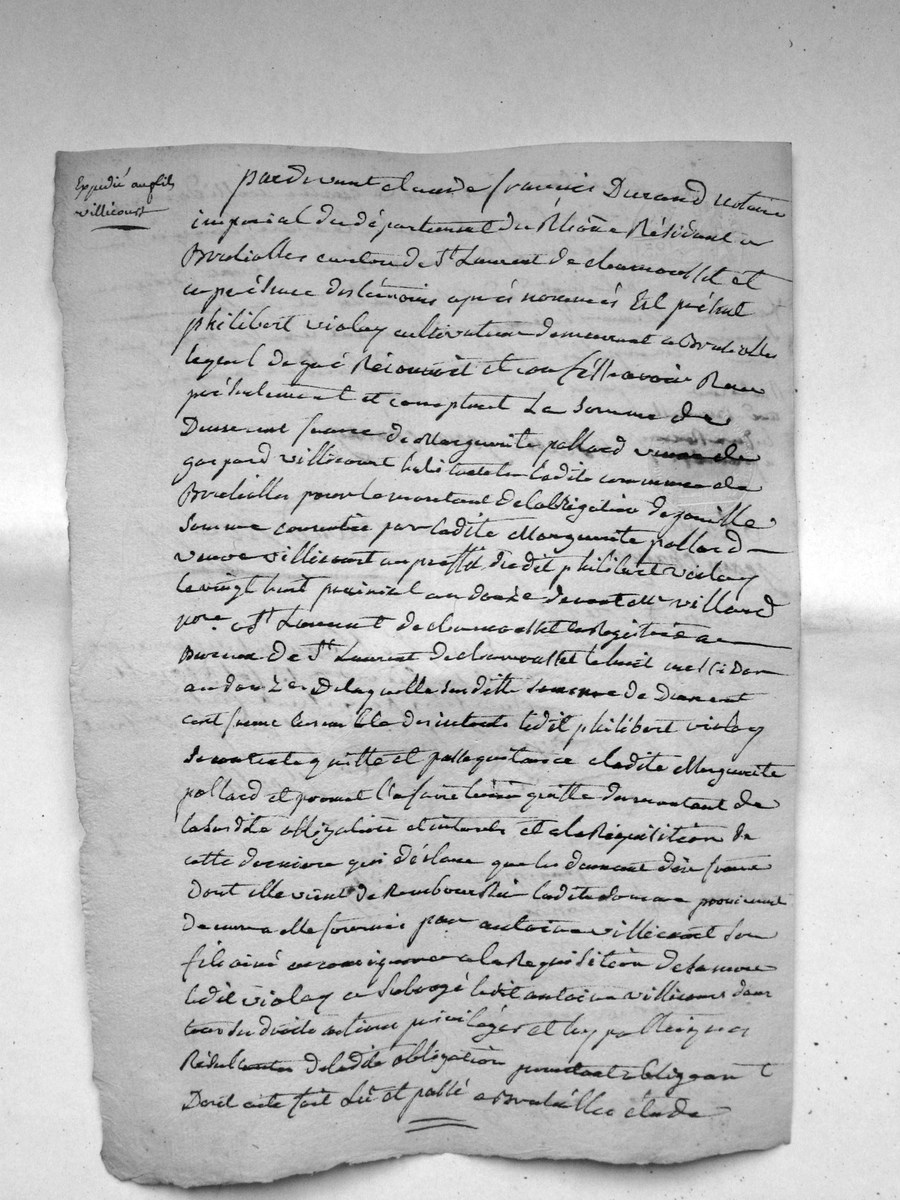 Expédié au fils
villicourt
pardevant claude françois Durand notaire
imperial du département du Rhône Résidant a
Brulliolles canton de St Laurent de chamousset et
en présence des témoins après nommés Est présent
philibert violay cultivateur demeurant a Brulliolles
lequel de gré Réconnoit et confesse avoir Reçu
présentement et comptant La Somme de
cent francs de Marguerite pallard veuve de
gaspard villicourt habitante de ladite commune de
Brulliolles pour le montant de l'obligation de pareille
Somme consentie par ladite Marguerite pallard
veuve villicourt au proffit du dit philibert violay
le vingt huit prairial an douze devant Me villard
nore a St Laurent de chamousset enregistrée au
Bureau de St Laurent de chamousset le huit messidor
an douze De laquelle susditte somme de
cent francs ensemble des interets ledit philibert violay
quitte et passe quitance a ladite Marguerite
pallard et promet l'en faire tenir quitte du montant de
la susdite obligation et interets et a la Réquisition de
cette derniere qui déclare que les francs
Dont elle vient de Rembourser ladite somme proviennent
de a elle fournis par antoine villicourt son
fils ainé a la Requisition de sa mere
ledit violay a Subrogé ledit antoine villicourt dans
tous ses droits actions privileges et hypotheques
Résultantes de ladite obligation obligeant
Dont acte fait Lu et passé a Brulliolles étude